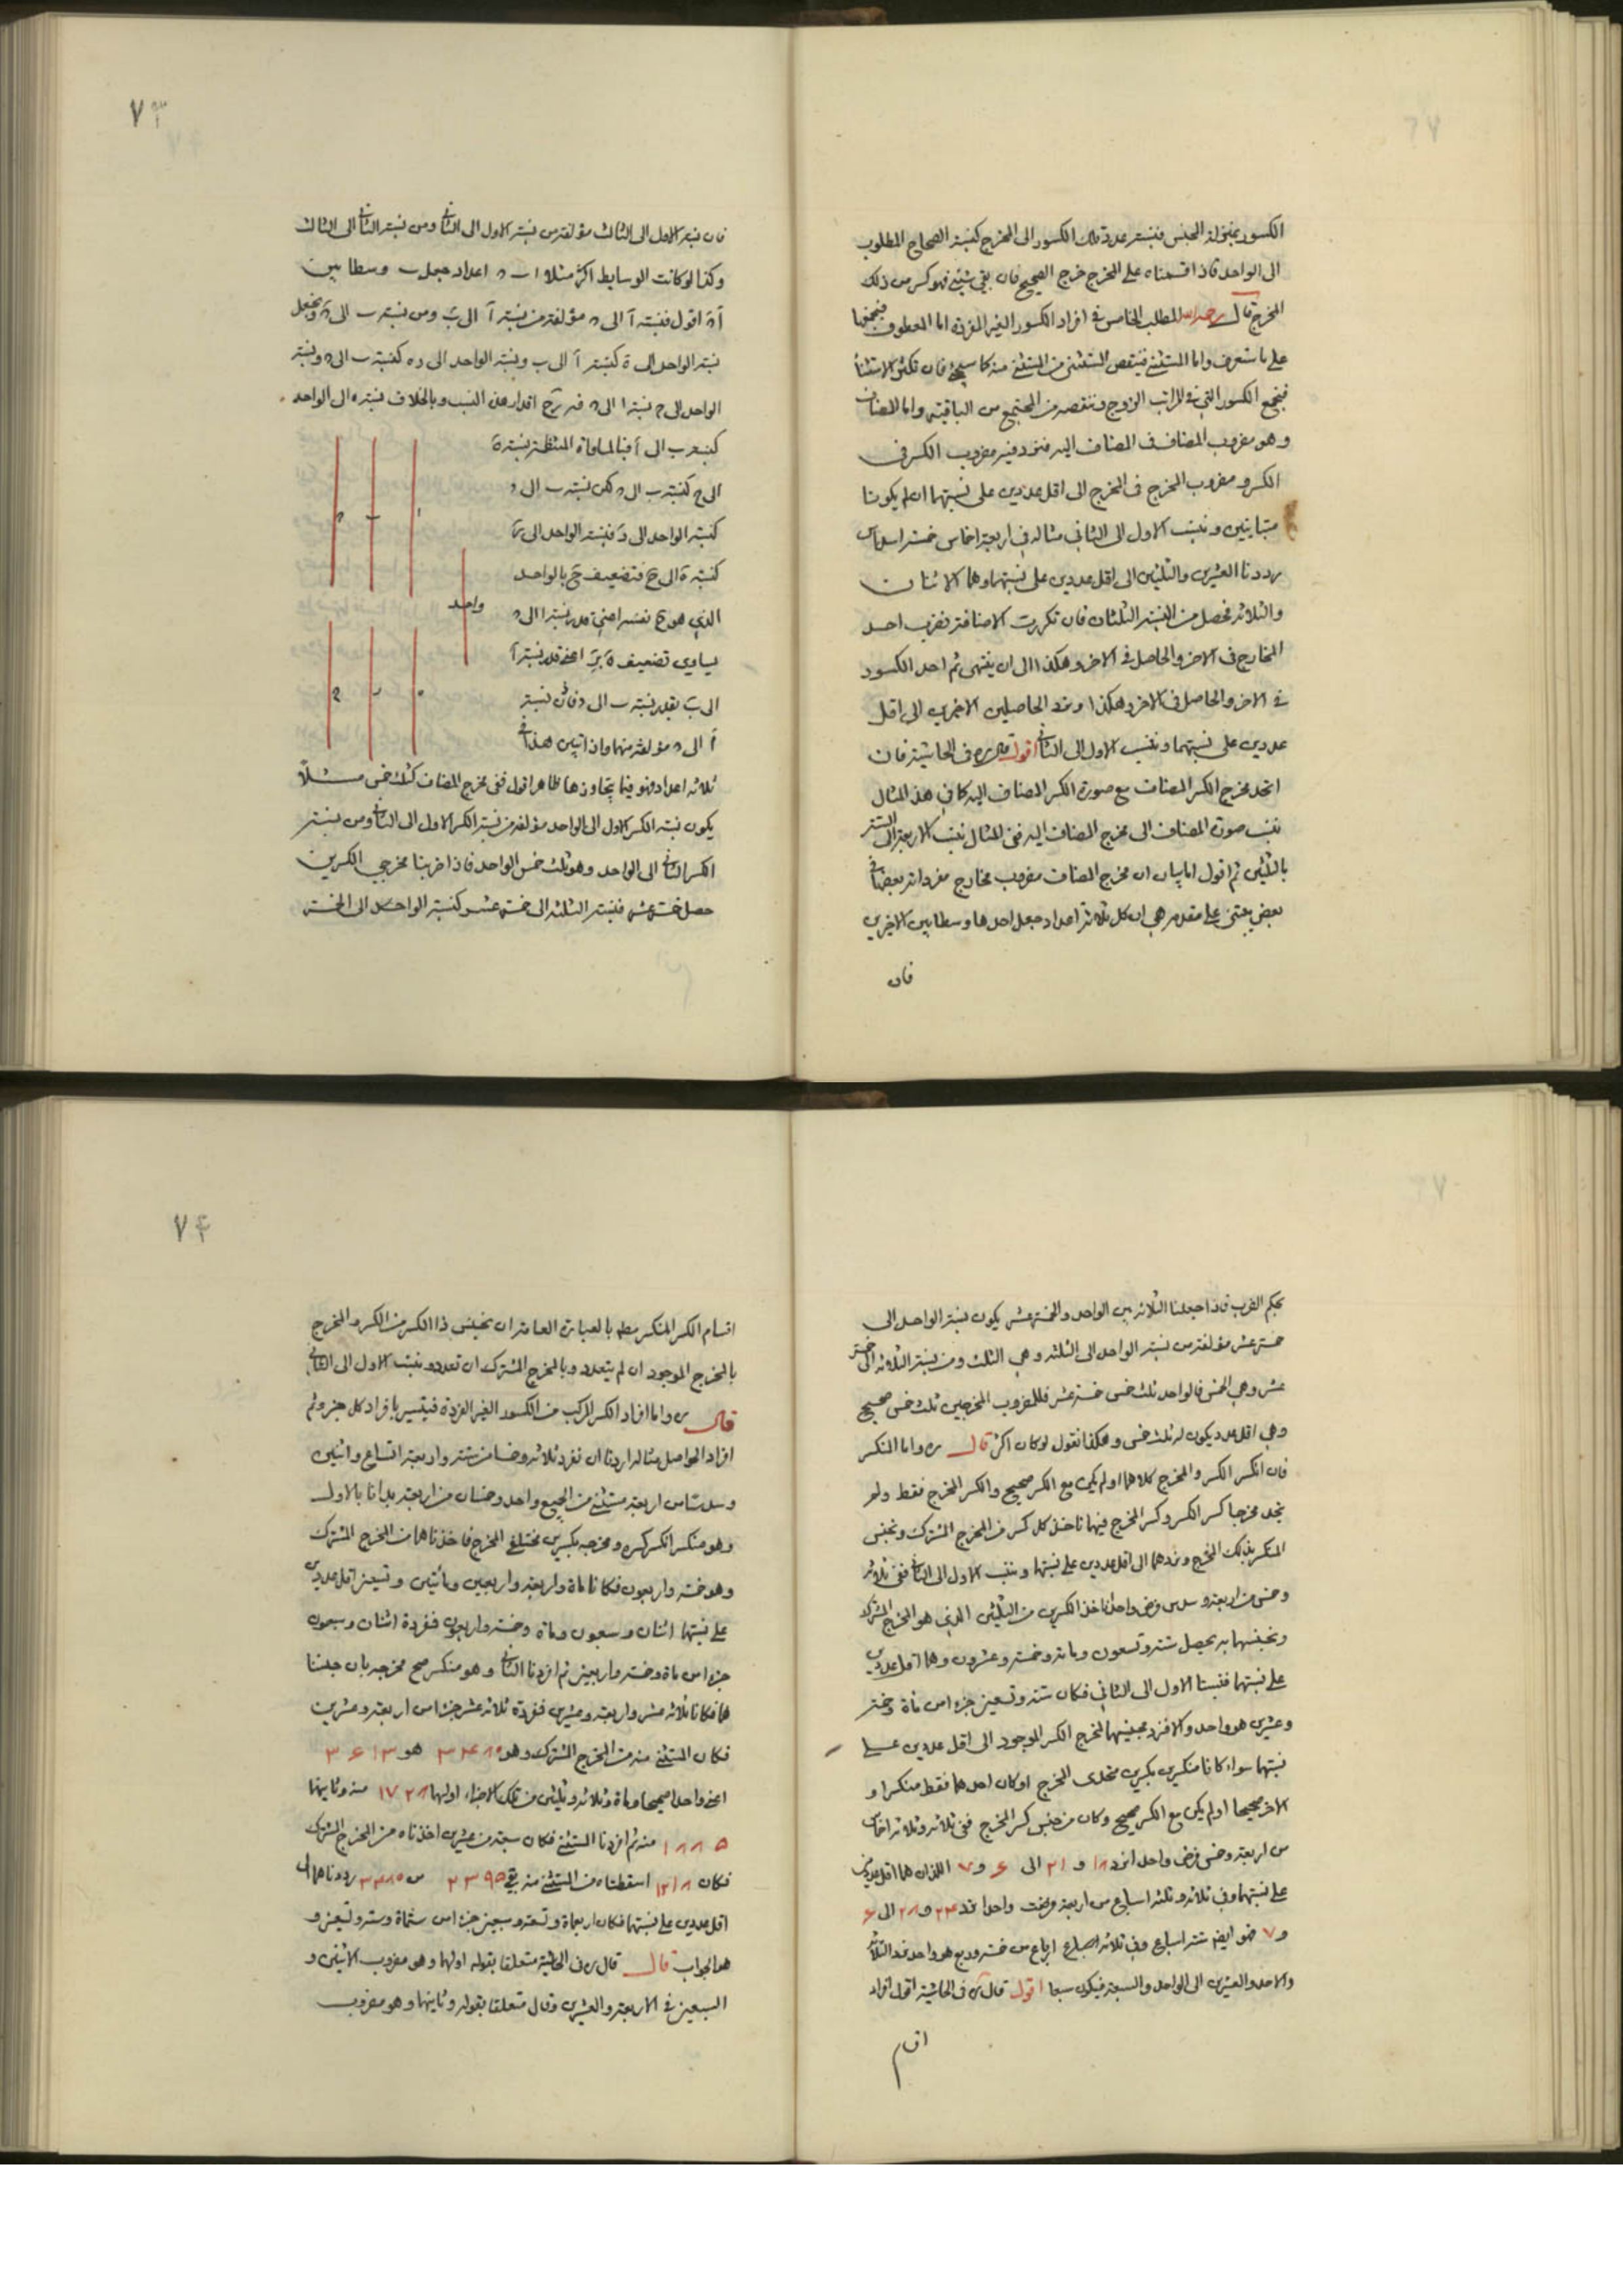 الكسور بمنزلة الجنس فنسبة عدة تلك الكسور الى المخرج كنسبة الصحاح المطلوب
الى الواحد فاذا قسمناه على المخرج خرج الصحيح فان بقى شيئ فهو كسر من ذلك
المخرج قال رحمه الله المطلب الخامس في افراد الكسور الغير المفردة اما المعطوف فنجمعها
على ما ستعرف واما المستثنى فينقص المستثنى من المستثنى منه كما سيجئ فان تكثر الاستثناء
فنجمع الكسور التي في المراتب الزوج وننقصه من المجتمع من الباقية واما المضاف
وهو مضروب المضاف في المضاف اليه فنرد فيه مضروب الكسر في
الكسر ومضروب المخرج في المخرج الى اقل عددين على نسبتهما ان لم يكونا
متباينين وننسب الاول الى الثاني مثاله في اربعة اخماس خمسة اسداس
رددنا العشرين والثلثين الى اقل عددين على نسبتهما وهما الاثنان
والثلاثة فحصل من النسبة الثلثان فان تكررت الاضافة نضرب احد
المخارج في الاخر والحاصل في الاخر وهكذا الى ان ينتهى ثم احد الكسور
في الاخر والحاصل في الاخر وهكذا ونرد الحاصلين الاخيرين الى اقل
عددين على نسبتهما وننسب الاول الى الثاني اقول في الحاشية فان
اتحد مخرج الكسر المضاف مع صورة الكسر المضاف اليه كما في هذا المثال
ننسب صورة المضاف الى مخرج المضاف اليه ففي المثال ننسب الاربعة الى الستة
بالثلثين ثم اقول اما بيان ان مخرج المضاف مضروب مخارج مفرداته بعضها في
بعض يبتنى على مقدمة هي ان كل ثلاثة اعداد جعل احدها وسطا بين الاخرين
فان
٧٣
فان نسبة الاول الى الثالث مؤلفة من نسبة الاول الى الثاني ومن نسبة الثاني الى الثالث
وكذا لو كانت الوسايط اكثر مثلا ا ب ح اعداد جعل ب وسطا بين
ا ح اقول فنسبة ا الى ح مؤلفة من نسبة ا الى ب ومن نسبة ب الى ح ونجعل
نسبة الواحد الى ه كنسبة ا الى ب ونسبة الواحد الى ر كنسبة ب الى ح ونسبة
الواحد الى ح نسبة ا الى ح فه ر ح اقدار هذه النسب وبالخلاف نسبة ه الى الواحد
كنسبة ب الى ا فبالمساواة المنتظمة نسبة ه
الى ح كنسبة ب الى ح لكن نسبة ب الى ح
كنسبة الواحد الى ر فنسبة الواحد الى ر
كنسبة ه الى ح فتضعيف ح بالواحد
الذي هو ح نفسه اعني قدر نسبة ا الى ح
يساوي تضعيف ه بر اعني قدر نسبة ا
الى ب بقدر نسبة ب الى ح فاذن نسبة
ا الى ح مؤلفة منهما واذا تبين هذا في
واحد
ثلاثة اعداد فهو فيما يتجاوزها ظاهر اقول ففي مخرج المضاف كثلث خمس مثلاً
يكون نسبة الكسر الاول الى الواحد مؤلفة من نسبة الكسر الاول الى الثاني ومن نسبة
الكسر الثاني الى الواحد وهو ثلث خمس الواحد فاذا ضربنا مخرجي الكسرين
حصل خمسة عشر فنسبة الثلثة الى خمسة عشر كنسبة الواحد الى الخمسة
بحكم الضرب فاذا جعلنا الثلاثة بين الواحد والخمسة عشر يكون نسبة الواحد الى
خمسة عشر مؤلفة من نسبة الواحد الى الثلثة وهي الثلث ومن نسبة الثلاثة الى خمسة
عشر وهي الخمس فالواحد ثلث خمس خمسة عشر فللمضروب المخرجين ثلث خمس صحيح
وهي اقل عدد يكون له ثلث خمس وهكذا نقول لو كان اكثر قال ره واما المنكسر
فان انكسر الكسر والمخرج كلاهما او لم يكن مع الكسر صحيح وانكسر المخرج فقط ولم
يتحد مخرجا كسر الكسر وكسر المخرج فيهما ناخذ كل كسر من المخرج المشترك ونجنس
المنكسر بذلك المخرج ونردهما الى اقل عددين على نسبتهما وننسب الاول الى الثاني ففي ثلاثة
وخمس من اربعة وسدس فرض واحدا ناخذ الكسرين من الثلثين الذي هو المخرج المشترك
ونجنسهما به يحصل ستة وتسعون ومائة وخمسة وعشرون وهما اقل عددين
على نسبتهما فنسبنا الاول الى الثاني فكان ستة وتسعين جزء من مائة وخمسة
وعشرين هو واحد والا فنرد مجنسهما لمخرج الكسر الموجود الى اقل عددين على
نسبتهما سواء كانا منكسرين بكسرين متحدى المخرج او كان احدهما فقط منكسرا و
الاخر صحيحا او لم يكن مع الكسر صحيح وكان من جنس كسر المخرج ففي ثلاثة وثلاثة اخماس
من اربعة وخمس فرض واحدا نرد ١٨ و ٢١ الى ٦ و ٧ اللذان هما اقل عددين
على نسبتهما وفي ثلاثة وثلثة اسباع من اربعة فرضت واحدا نرد ٢٤ و ٢٨ الى ٦
و ٧ فهو ايضا ستة اسباع وفي ثلاثة ارباع من خمسة وربع هو واحد نرد الثلاثة
والاحد والعشرين الى الواحد والسبعة فيكون سبعا اقول قال ره في الحاشية اقول افراد
اقسام
٧٤
اقسام الكسر المنكسر مطلقا بالعبارة العامة ان نجنس ذا الكسر من الكسر والمخرج
بالمخرج الموجود ان لم يتعدد وبالمخرج المشترك ان تعدد وننسب الاول الى الثاني
قال ره واما افراد الكسر المركب من الكسور الغير المفردة فيتيسر بافراد كل جزء ثم
افراد الحواصل مثاله اردنا ان نفرد ثلاثة وخمسا من ستة واربعة اتساع واثنين
وسدسا من اربعة مستثنى من الجميع واحد وخمسان من اربعة بدانا بالاول
وهو منكسر انكسر كسره ومخرجه بكسرين مختلفي المخرج فاخذناهما من المخرج المشترك
وهو خمسة واربعون فكانا مائة واربعة واربعين ومائتين وتسعين اقل عددين
على نسبتهما اثنان وسبعون ومائة وخمسة واربعون فمفرده اثنان وسبعون
جزء من مائة وخمسة واربعين ثم افردنا الثاني وهو منكسر صح مخرجه بان جنسنا
هما فكانا ثلاثة عشر واربعة وعشرين فمفرده ثلاثة عشر جزءا من اربعة وعشرين
فكان المستثنى منه من المخرج المشترك وهو ٣٤٨٠ هو ٣٦١٣
اعني واحدا صحيحا ومائة وثلاثة وثلثين من تلك الاجزاء اولهما ١٧٢٨ منه وثانيهما
١٨٨٥ منه ثم افردنا المستثنى فكان سبعة من عشرين اخذناه من المخرج المشترك
فكان ١٢١٨ اسقطناه من المستثنى منه بقي ٢٣٩٥ من ٣٤٨٠ رددناهما الى
اقل عددين على نسبتهما فكان اربعمائة وتسعة وسبعين جزءا من ستمائة وستة وتسعين و
هو الجواب قال قال ره في الحاشية متعلقا بقوله اولهما وهو مضروب الاثنين و
السبعين في الاربعة والعشرين وقال متعلقا بقوله وثانيهما وهو مضروب